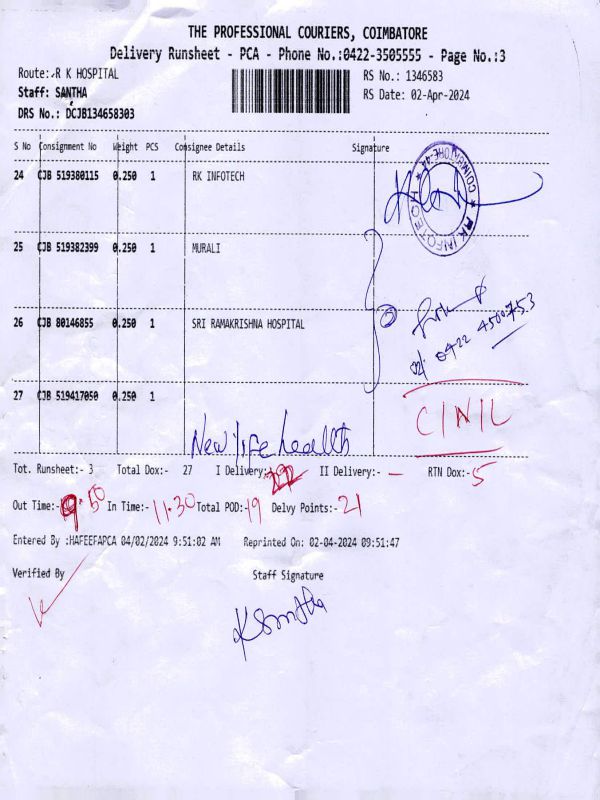 THE PROFESSIONAL COURIERS, COIMBATORE
Delivery Runsheet - PCA - Phone No.:0422-3505555 - Page No.:3
Route: R K HOSPITAL
RS No.: 1346583
Staff: SANTHA
RS Date: 02-Apr-2024
DRS No.: DCJB134658303
S No Consignment No Weight PCS Consignee Details Signature
24 CJB 519380115 0.250 1 RK INFOTECH
* RK INFOTECH * COIMBATORE-44
25 CJB 519382399 0.250 1 MURALI
26 CJB 80146855 0.250 1 SRI RAMAKRISHNA HOSPITAL
②
0422 4500753
27 CJB 519417050 0.250 1
New life health
C/N/L
Tot. Runsheet:- 3 Total Dox:- 27 I Delivery:- 22 II Delivery:- — RTN Dox:- 5
Out Time:- 9.50 In Time:- 11.30 Total POD:- 19 Delvy Points:- 21
Entered By :HAFEEFAPCA 04/02/2024 9:51:02 AM Reprinted On: 02-04-2024 09:51:47
Verified By Staff Signature
K Santha